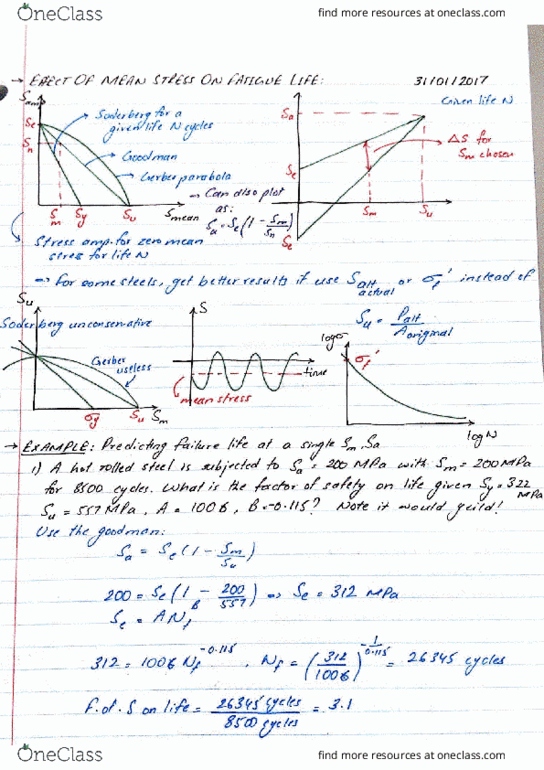 OneClass
find more resources at oneclass.com
→ EFFECT OF MEAN STRESS ON FATIGUE LIFE: 31/01/2017
Samp
Soderberg for a
given life N cycles
Goodman
Gerber parabola
Se
Sn
Sm Sy Su Smean
→ Can also plot
as:
Sa = Se(1 - Sm/Su)
Stress amp. for zero mean
stress for life N
Given life N
Sa
Se
Se
Sm Su
ΔS for
Sm chosen
⇒ For some steels, get better results if use Salt actual or σf' instead of
Su = Palt / Aoriginal
Su
Soderberg unconservative
Gerber
useless
σy Su Sm
S
time
mean stress
logσ
σf'
logN
→ EXAMPLE: Predicting failure life at a single Sm, Sa
1) A hot rolled steel is subjected to Sa = 200 MPa with Sm = 200 MPa
for 8500 cycles. What is the factor of safety on life given Sy = 322 MPa
Su = 557 MPa, A = 1006, B = -0.115? Note it would yeild!
Use the goodman:
Sa = Se(1 - Sm/Su)
200 = Se(1 - 200/557) ⇒ Se = 312 MPa
Se = ANf^B
312 = 1006 Nf^-0.115, Nf = (312/1006)^-1/0.115 = 26345 cycles
F.of.S on life = 26345 cycles / 8500 cycles = 3.1
OneClass
find more resources at oneclass.com